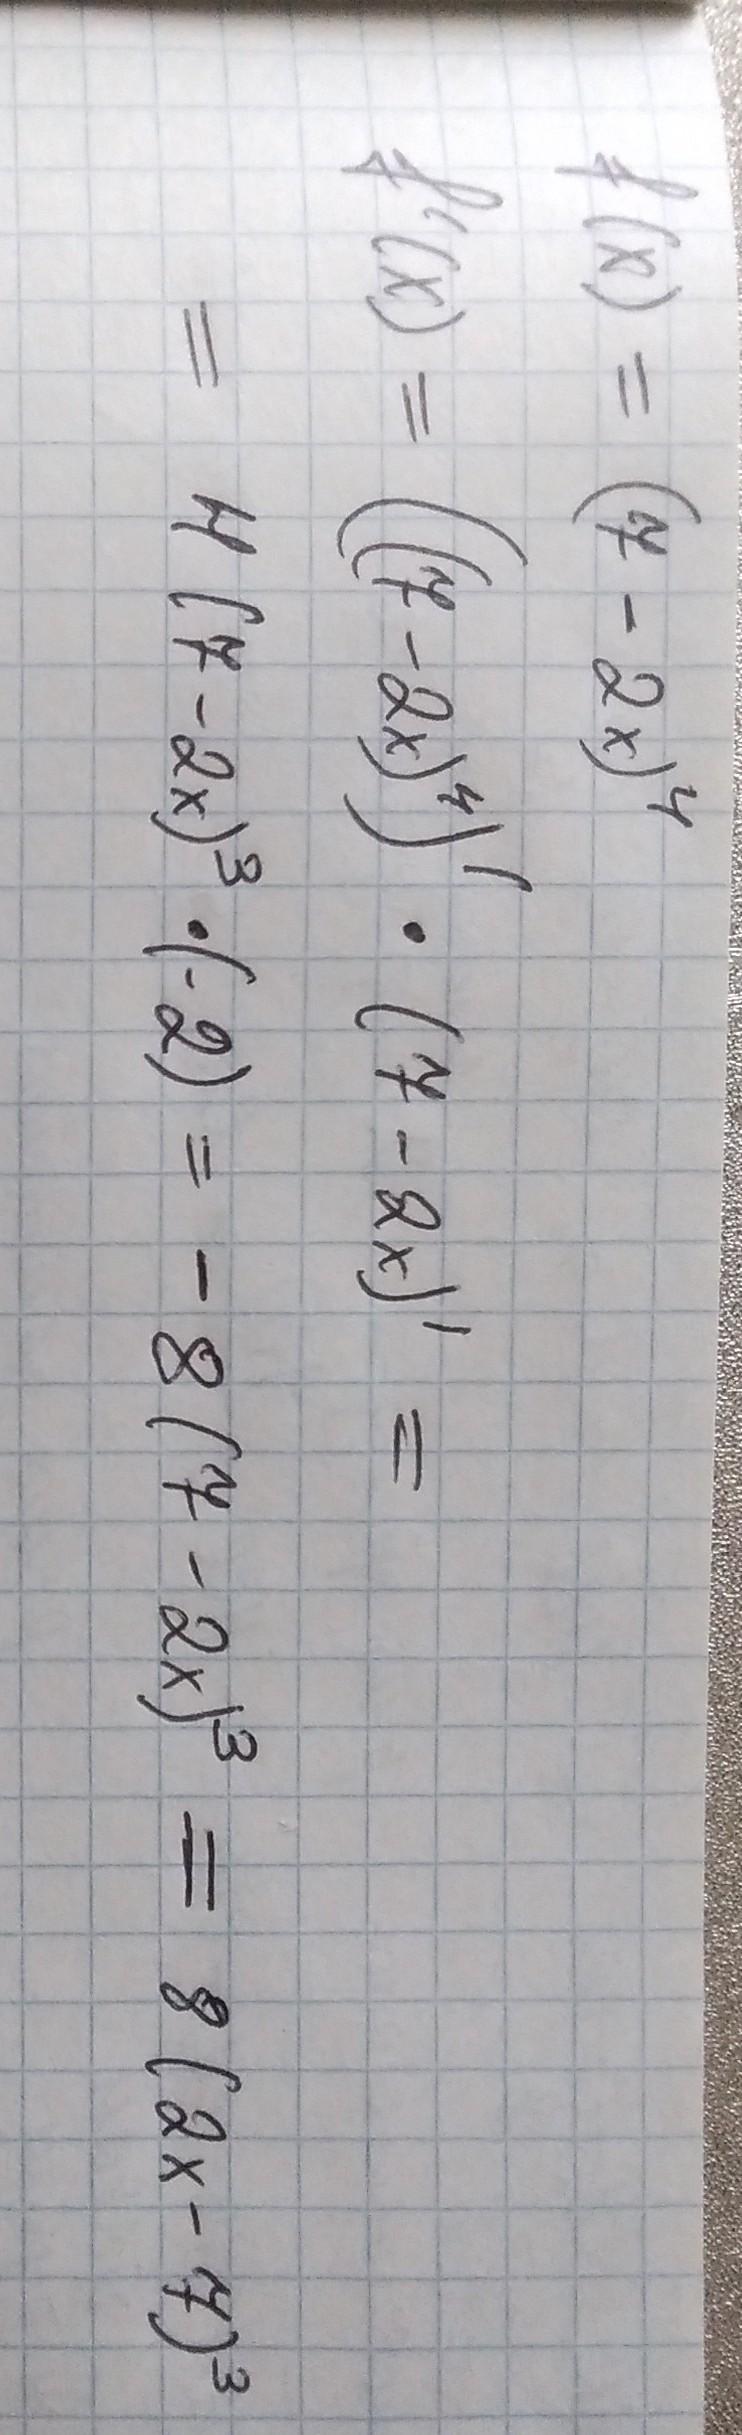 f(x) = (7 - 2x)⁴
f'(x) = ((7 - 2x)⁴)' · (7 - 2x)' =
= 4(7 - 2x)³ · (-2) = - 8(7 - 2x)³ = 8(2x - 7)³